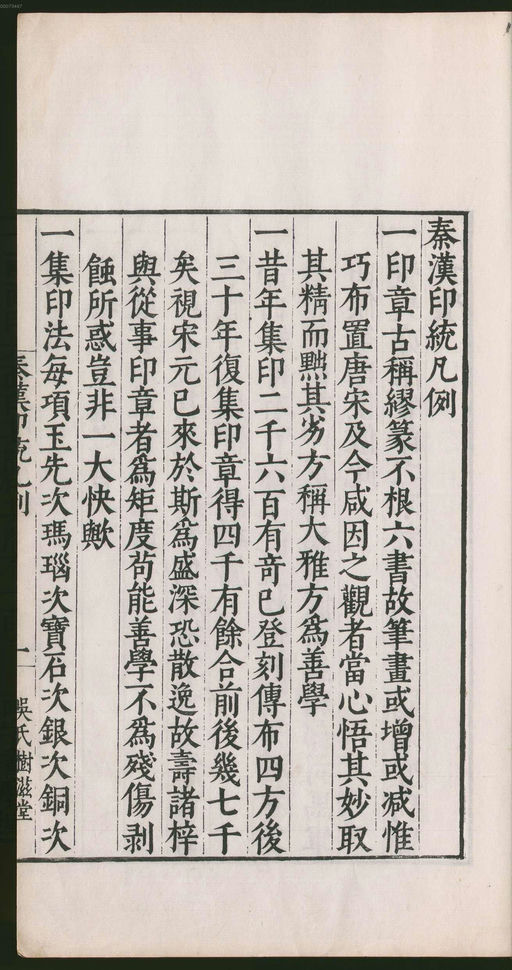 秦漢印統凡例
一印章古稱繆篆不根六書故筆畫或增或减惟
巧布置唐宋及今咸因之觀者當心悟其妙取
其精而黜其劣方稱大雅方爲善學
一昔年集印二千六百有奇已登刻傳布四方後
三十年復集印章得四千有餘合前後幾七千
矣視宋元已來於斯爲盛深恐散逸故壽諸梓
與從事印章者爲矩度苟能善學不爲殘傷剥
蝕所惑豈非一大快歟
一集印法每項玉先次瑪瑙次寶石次銀次銅次
秦漢印統凡例
一
吳氏樹滋堂
00073447